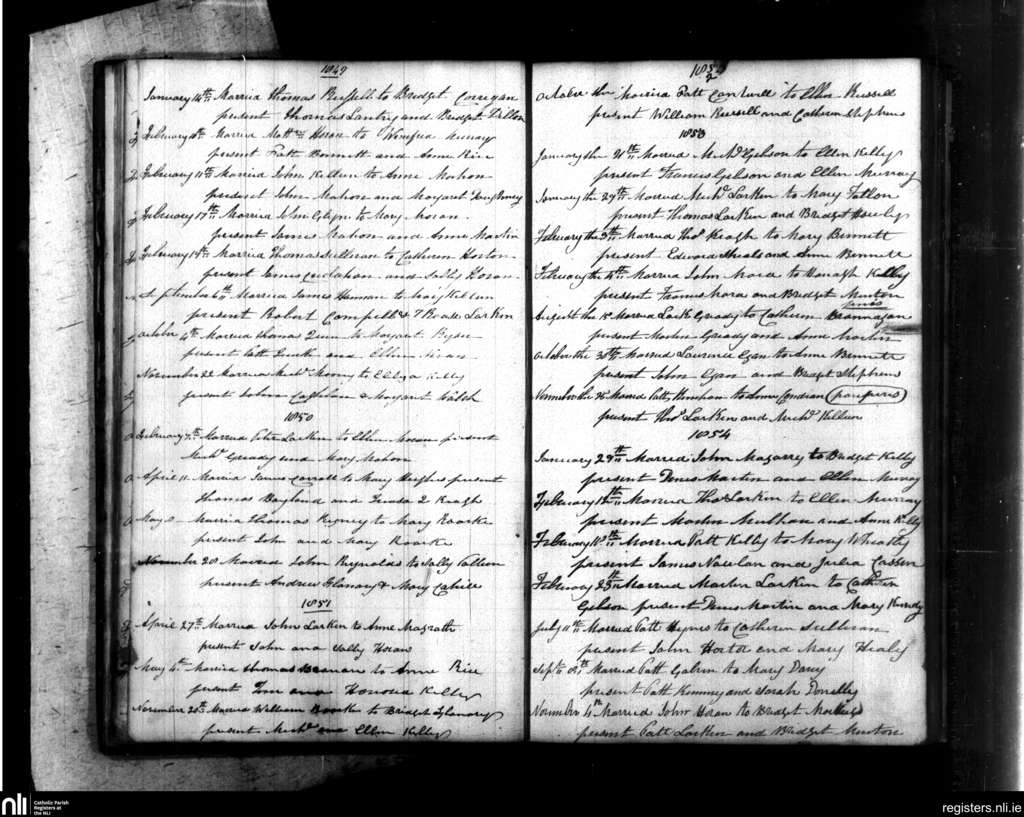 1849
January 14th Married Thomas Russell to Bridget Corrigan
present Thomas Larkin and Bridget Dillon
February Married Matt Horan to Winifred Murray
present Patt Bennett and Anne Rice
February 11th Married John Killeen to Anne Mahon
present John Mahon and Margaret
February 17th Married John Glynn to Mary Moran
present James Mahon and Anne Martin
February 19th Married Thomas Sullivan to Catherine Horton
present James and Sally Horan
September 6th Married James Hannan to Mary Killeen
present Robert Campbell & Larkin
October 4th Married Thomas Quinn to Margaret Ryan
present Patt and Ellen
November 22 Married Michl to Eliza Kelly
present John Coghlan & Margaret Walsh
1850
February 7th Married Peter Larkin to Ellen Horan present
Michl Gready and Mary Mahon
April 11 Married James Carroll to Mary Hughes present
Thomas and Keogh
May Married Thomas Rigney to Mary Roarke
present John and Mary Roarke
November 20 Married John Reynolds to Sally Fallon
present Andrew Glanary & Mary Cahill
1851
April 27th Married John Larkin to Anne Magrath
present John and Sally Horan
May 4th Married Thomas to Anne Rice
present and Honoria Kelly
November 20th Married William to Bridget Glanary
present Michl and Ellen Kelly
1852
October the Married Patt Cantwell to Ellen Russell
present William Russell and Cathern Stephens
1853
January the 21th Married Michl Gibson to Ellen Kelly
present Francis Gibson and Ellen Murray
January the 29th Married Michl Larkin to Mary Fallon
present Thomas Larkin and Bridget
February the 3th Married Thos Keagh to Mary Bennett
present Edward Sheals and Anne Bennett
February the 4th Married John Mara to Honagh Kelly
present Francis Mara and Bridget Minton
August the Married Gready to Cathern Brannagan
present Martin Gready and Anne Martin
October the 30th Married Laurence Egan to Anne Bennett
present John Egan and Bridget Stephens
November the Married Patt to Anne Condran (pauperis)
present Thos Larkin and Michl Killeen
1854
January 29th Married John Magarry to Bridget Kelly
present Denis Martin and Ellen Murray
February 12th Married Thos Larkin to Ellen Murray
present Martin Mulhan and Anne Kelly
February Married Patt Kelly to Mary Wheatly
present James Nowlan and Julia
February 25th Married Martin Larkin to Cathern
Gibson present Denis Martin and Mary Kennedy
July 11th Married Patt Hynes to Cathern Sullivan
present John Horton and Mary Healy
Sept 8th Married Patt Galvin to Mary Darcy
present Patt Kenney and Sarah Donelly
November 4th Married John Horan to Bridget
present Patt Larkin and Bridget Minton
nli
Catholic Parish
Registers at
the NLI
registers.nli.ie